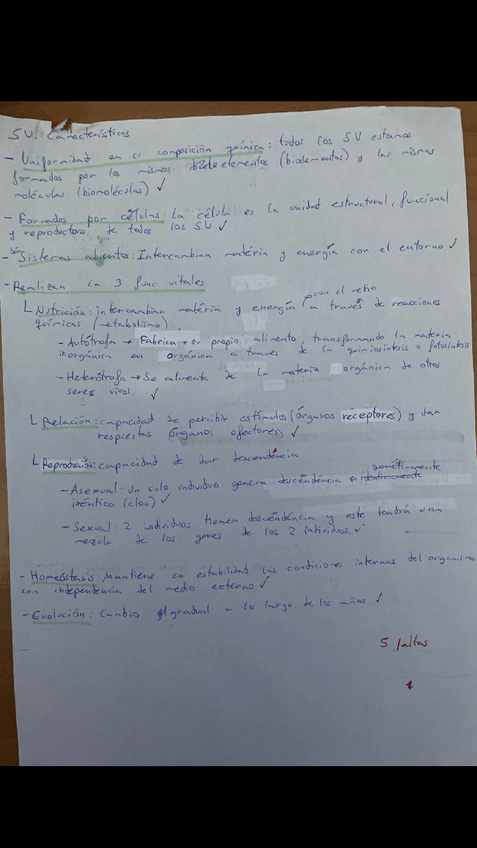 SV. Características
- Uniformidad en composición química: todos los SV estamos
formados por los mismos bioelementos (bioelementos) y las mismas
moléculas (biomoléculas) ✓
- Formados por células: La célula es la unidad estructural, funcional
y reproductora de todos los SV ✓
- Son Sistemas abiertos: Intercambian matéria y energía con el entorno ✓
- Realizan la 3 func vitales
Nutrición: intercambian matéria y energía con el medio a través de reacciones
químicas (metabolismo)
- Autótrofa → Fabrica su propio alimento, transformando la materia
inorgánica en orgánica a traves de la quimiosíntesis o fotosíntesis
- Heterótrofa → Se alimenta de la materia orgánica de otros
seres vivos. ✓
Relación: capacidad de percibir estímulos (órganos receptores) y dan
respuestas (órganos efectores) ✓
Reproducción: capacidad de dar descendencia
- Asexual: Un solo individuo genera descendéncia genéticamente
idéntico (clon) ✓
- Sexual: 2 individuos tienen descendéncia y este tendrá una
mezcla de los genes de los 2 individuos. ✓
- Homeóstasis: Mantiene en estabilidad las condiciones internas del organismo
con independencia del medio externo ✓
- Evolución: Cambio gradual a lo largo de los años. ✓
5 faltas